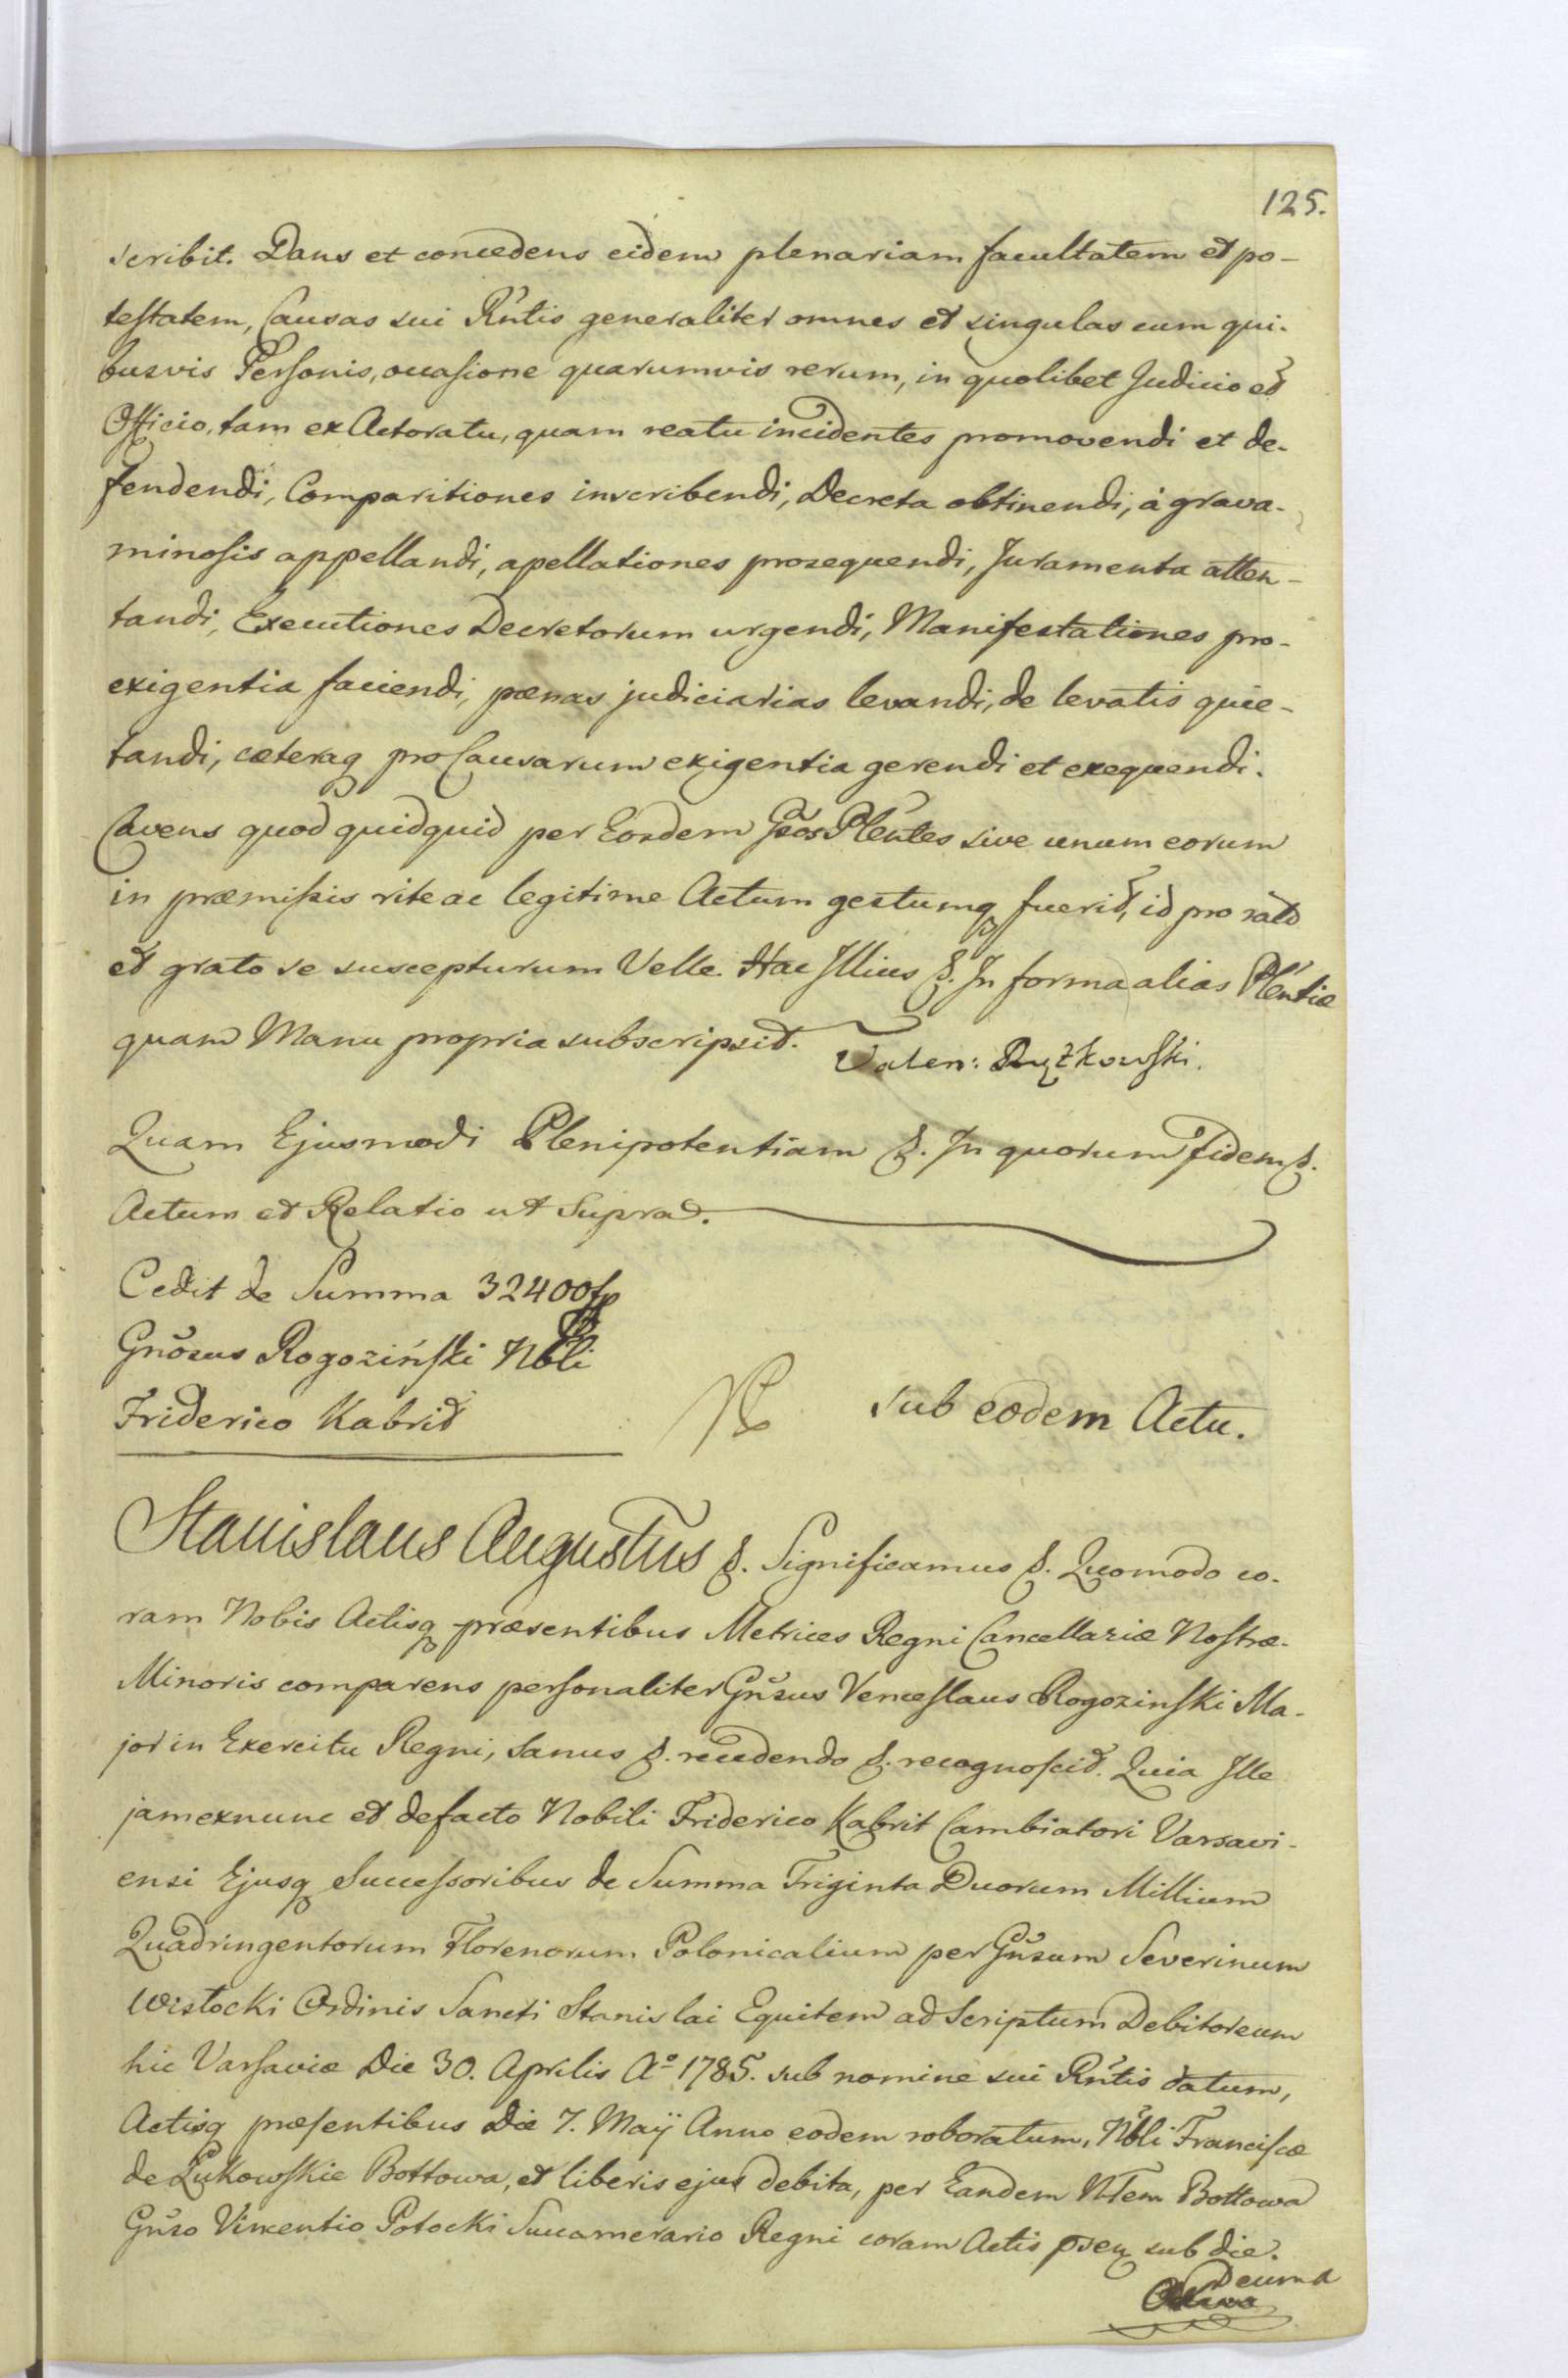 125.
scribit. Dans et concedens eidem plenariam facultatem et po-
testatem, Causas sui Rñtis generaliter omnes et singulas cum qui-
busvis Personis, occasione quarumvis rerum, in quolibet Judicio et
Officio, tam ex Actoratu, quam reatu incidentes promovendi et de-
fendendi, Comparitiones inscribendi, Decreta obtinendi, à grava-
minosis appellandi, apellationes prosequendi, Juramenta atten-
tandi, Executiones Decretorum urgendi, Manifestationes pro-
exigentia faciendi, pœnas judiciarias levandi, de levatis quie-
tandi, cæteraq pro Causarum exigentia gerendi et exequendi.
Cavens quod quidquid per Eosdem Gsos Plentes sive unum eorum
in præmissis rite ac legitime Actum gestumq fuerit, id pro rato
et grato se suscepturum Velle. Hac Illius &. In forma alias Plentiæ
quam Manu propria subscripsit. Valen: Ryżkowski.
Quam Ejusmodi Plenipotentiam &. In quorum fidem &.
Actum et Relatio ut Supra.
Cedit de Summa 32400 fp
Gnõsus Rogoziński Nbli
Friderico Kabrit
sub eodem Actu.
Stanislaus Augustus &. Significamus &. Quomodo co-
ram Nobis Actisq præsentibus Metrices Regni Cancellariæ Nostræ
Minoris comparens personaliter Gñsus Venceslaus Rogozinski Ma-
jor in Exercitu Regni, Sanus &. recedendo &. recognoscit. Quia Ille
jam exnunc et defacto Nobili Friderico Kabrit Cambiatori Varsavi-
ensi Ejusq Successoribus de Summa Triginta Duorum Millium
Quadringentorum Florenorum Polonicalium per Gñsum Severinum
Wisłocki Ordinis Sancti Stanislai Equitem ad Scriptum Debitoreum
hic Varsaviæ Die 30. Aprilis Aº 1785. sub nomine sui Rñtis datum,
Actisq præsentibus Die 7. Maÿ Anno eodem roboratum, Nbli Franciscæ
de Lukowskie Bottowa, et liberis ejus debita, per Eandem NTem Bottowa
Gñso Vincentio Potocki Succamerario Regni coram Actis psen sub die.
Decima